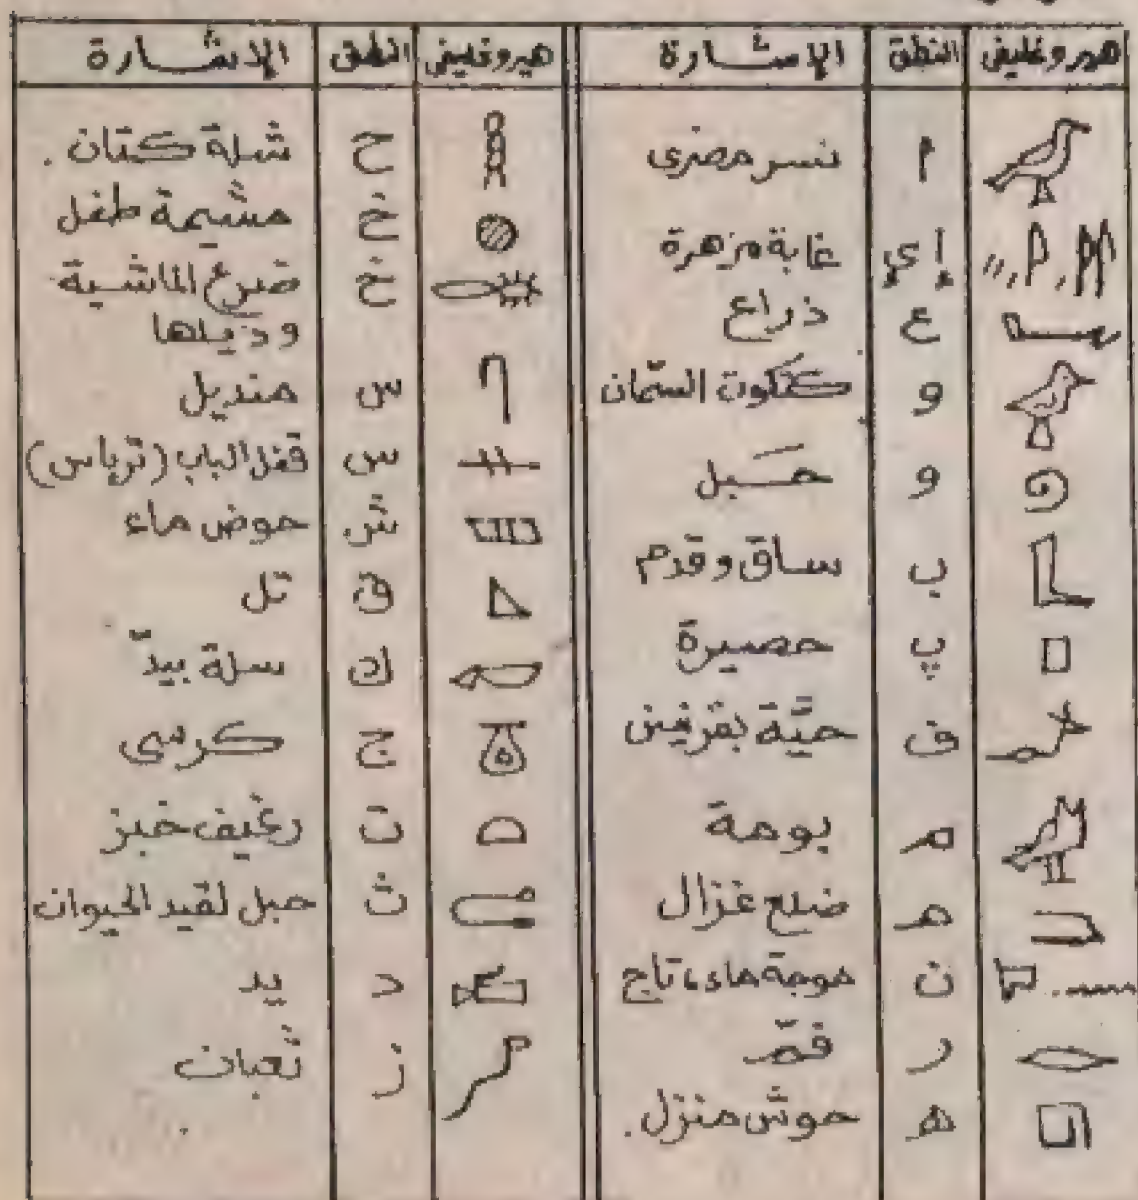 هيروغليفى النطق الإشارة
م نسر مصرى
إ ي غابة مزهرة
ع ذراع
و كتكوت السمّان
و حبل
ب ساق وقدم
پ حصيرة
ف حيّة بقرنين
م بومة
م ضلع غزال
ن موجة ماء، تاج
ر فمّ
ه حوش منزل.
هيروغليفى النطق الإشارة
ح شلة كتان.
خ مشيمة طفل
خ ضرع الماشية
وذيلها
س منديل
س قفل الباب (ترباس)
ش حوض ماء
ق تل
ك سلة بيدّ
ج كرسى
ت رغيف خبز
ث حبل لقيد الحيوان
د يد
ز ثعبان